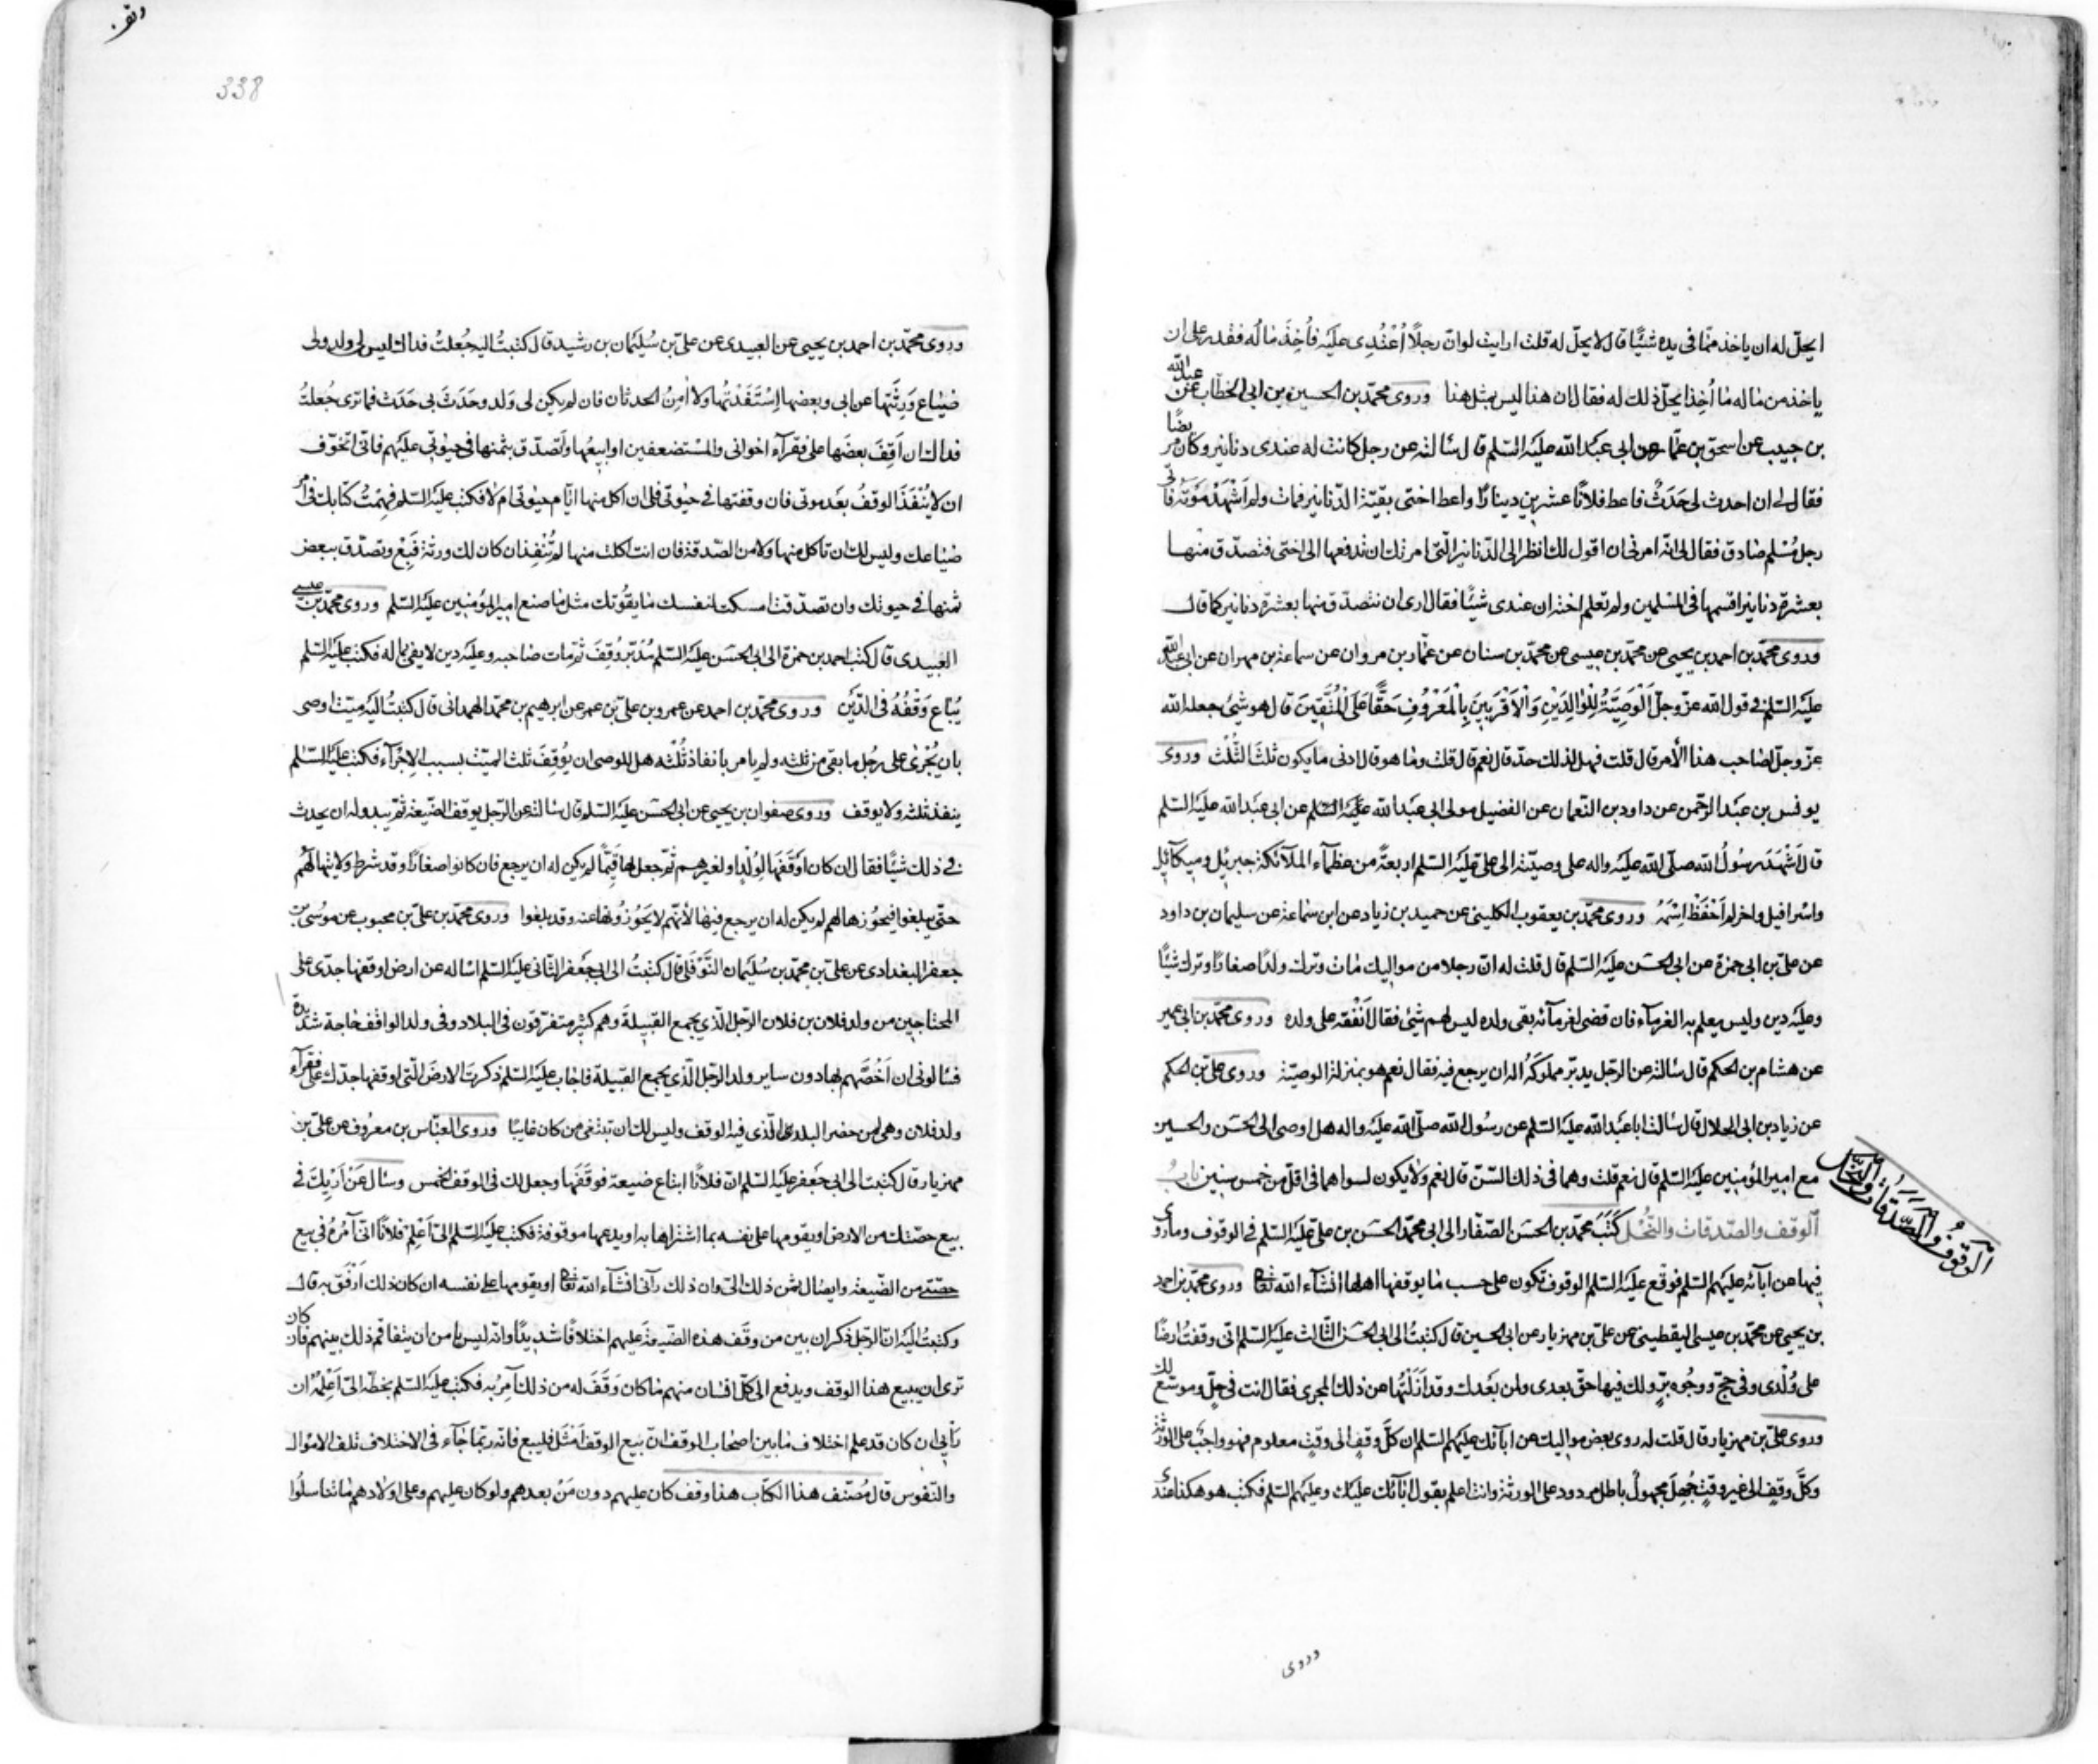 ايحلّ له ان ياخذ ممّا فى يده شيئًا قال لا يحلّ له قلت ارايت لو انّ رجلًا اعْتُدِى عليْه فاُخِذ ماله فقدر على ان
ياخذ من ماله ما اُخِذ ايحلّ ذلك له فقال ان هذا ليس بمثل هذا وروى محمّد بن الحسين بن ابى الخطّاب عن عبد الله
بن حبيب عن اسحق بن عمّار عن ابى عبد الله عليه السّلم قال سالته عن رجل كانت له عندى دنانير وكان مريضًا
فقال لى ان احدث لى حَدَثٌ فاعط فلانًا عشرين دينارًا واعط اختى بقيّة الدّنانير فمات ولم اَشْهَدْ مَوْتَه فاتى
رجل مُسْلم صادق فقال لى انّه امرنى ان اقول لك انظر الى الدّنانير الّتى امرتك ان تدفعها الى اختى فتصدّق منها
بعشرة دنانير اقسمها فى المسْلمين ولم تعلم اخته ان عندى شيئًا فقال ارى ان تتصدّق منها بعشرة دنانير كما قال
وروى محمّد بن احمد بن يحيى عن محمّد بن عيسى عن محمّد بن سنان عن عمّار بن مروان عن سماعة بن مهران عن ابى عبد الله
عليْه السّلم فى قول الله عزّ وجلّ اَلْوَصِيَّةُ لِلْوٰالِدَيْنِ وَالْاَقْرَبِينَ بِالْمَعْرُوفِ حَقًّا عَلَى الْمُتَّقِينَ قال هو شئ جعله الله
عزّ وجلّ لصاحب هذا الأمر قال قلت فهل لذلك حدّ قال نعم قال قلت وما هو قال ادنى ما يكون ثلث الثُّلْث وروى
يونس بن عبْد الرّحمن عن داود بن النّعمان عن الفضيل مولى ابى عبد الله عليْه السّلم عن ابى عبد الله عليْه السّلم
قال اَشْهَدَ رسُولُ الله صلّى الله عليْه واله على وصيّته الى علىّ عليْه السّلم اربعةً من عظمآء الملآئكة جبرئيل وميكآئيل
واسرافيل واخر لم اَحْفَظْ اِسْمَهُ وروى محمّد بن يعقوب الكلينى عن حميد بن زياد عن ابن سماعة عن سليمان بن داود
عن علىّ بن ابى حمزة عن ابى الحسَن عليْه السّلم قال قلت له انّ رجلا من مواليك مات وترك ولدًا صغارًا وترك شيئًا
وعليْه دين وليس يعلم به الغرمآء فان قضى لغرمآئه بقى ولده ليس لهم شئ فقال اَنْفِقْه على ولده وروى محمّد بن ابى عمير
عن هشام بن الحكم قال سالته عن الرّجل يدبّر مملوكهُ اله ان يرجع فيه فقال نعم هو بمنزلة الوصيّة وروى علىّ بن الحكم
عن زياد بن ابى الحلال قال سالت ابا عبْد الله عليْه السّلم عن رسُول الله صلّى الله عليْه واله هل اوصى الى الحسَن والحسين
مع امير المؤمنين عليْه السّلم قال نعم قلت وهما فى ذلك السّنّ قال نعم ولا يكون لسواهما فى اقلّ من خمس سنين بابُ
الوقف والصّدقات والنُّحْل كَتَبَ محمّد بن الحسَن الصّفّار الى ابى محمّد الحسَن بن علىّ عليْه السّلم فى الوقوف وما روى
فيها عن ابآئه عليْهم السّلم فوقّع عليْه السّلم الوقوف تكون على حسب ما يوقفها اهلها انشآء الله تعالى وروى محمّد بن احمد
بن يحيى عن محمّد بن عيسى اليقطينى عن علىّ بن مهزيار عن ابى الحسين قال كتبتُ الى ابى الحسَن الثّالث عليْه السّلم انّى وقفتُ ارضًا
على وُلْدى وفى حجّ ووجُوه برّ ولك فيها حقّ بعدى ولمن بَعْدك وقد اَزَلْتُها عن ذلك المجرى فقال انت فى حِلّ وموسّع لك
وروى علىّ بن مهزيار قال قلت له روى بعض مواليك عن ابآئك عليْهم السّلم ان كلّ وقفٍ الى وقتٍ معلوم فهو واجبٌ على الورثة
وكلّ وقفٍ الى غير وقتٍ جُهِلَ مجهولٌ باطل مردود على الورثة وانت اعلم بقول ابآئك عليْك وعليْهم السّلم فكتب هو هكذا عندى
اَلْوُقوُفُ وَالصَّدَقاتُ وَالنُّحْل
وروى
338
وروى محمّد بن احمد بن يحيى عن العبيدى عن علىّ بن سُليمان بن رشيد قال كتبتُ اليه جُعلتُ فداك ليس لى ولد ولى
ضياع وَرِثْتها عن ابى وبعضها اِسْتَفَدْتُها ولا آمنُ الحدثان فان لم يكن لى وَلد وحَدَثَ بى حَدَث فما ترى جُعلتُ
فداك ان اَقِفَ بعضَها على فقرآء اخوانى والمسْتضعفين او ابيعُها واَتَصدّق بثمنها فى حيوتى عليْهم فانّى اتخوّف
ان لا يُنْفَذَ الوقفُ بعَد موتى فان وقفتها فى حيوتى فلى ان اكل منها ايّام حيوتى ام لا فكتب عليْه السّلم فهمْتُ كتابك فى امر
ضياعك وليس لك ان تاكل منها ولا من الصّدقة فان انت اكلت منها لم تُنْفِذ ان كان لك ورثة فَبِعْ وتصدّق ببعض
ثمنها فى حيوتك وان تصدّقت امسكت لنفسك ما يقُوتك مثل ما صنع امير المؤمنين عليْه السّلم وروى محمّد بن عيسى
العبيدى قال كتب احمد بن حمزة الى ابى الحسَن عليْه السّلم مُدَبَّر وُقِفَ ثمّ مات صاحبه وعليْه دين لا يفى بماله فكتب عليْه السّلم
يُباع وَقْفُهُ فى الدَّيْن وروى محمّد بن احمد عن عمرو بن علىّ بن عمر عن ابرهيم بن محمّد الهمدانى قال كتبتُ اليْه ميّت اوصى
بان يُجْرىٰ على رجُل ما بقى من ثلثه ولم يامر بانفاذ ثُلُثه هل للوصى ان يُوقِفَ ثلث الميّت بسبب الاِجْرآء فكتب عليْه السّلم
ينفذ ثلثه ولا يوقف وروى صفوان بن يحيى عن ابى الحسَن عليْه السّلم قال سالته عن الرّجل يوقف الضّيعة ثمّ يبدو له ان يحدث
فى ذلك شيئًا فقال ان كان اَوْقَفَها لِوُلْدِهِ او لغيرهم ثمّ جعل لها قَيِّمًا لم يكن له ان يرجع فان كانوا صغارًا وقد شرط ولايتها لهُم
حتّى يبلغوا فيحُوزها لهم لم يكن له ان يرجع فيها وروى محمّد بن علىّ بن محبوب عن موسى بن
جعفر البغدادى عن علىّ بن محمّد بن سُليمان النّوْفلى قال كتبتُ الى ابى جَعفر الثّانى عليْه السّلم اساله عن ارض اوقفها جدّى على
المحتاجين من ولد فلان بن فلان الرّجل الّذى يجمع القبيلة وهم كثير متفرّقون فى البلاد وفى ولد الواقف حاجة شديدة
فسالونى ان اَخُصَّهم بها دون ساير ولد الرّجل الّذى يجمع القبيلة فاجاب عليْه السّلم ذكرتَ الارضَ الّتى اوقفها جدّك على فقرآء
ولد فلان وهى لمن حضر البلد الّذى فيه الوقف وليس لك ان تبتغى من كان غايبًا وروى العبّاس بن معرُوف عن علىّ بن
مهزيار قال كتبت الى ابى جَعفر عليْه السّلم انّ فلانًا ابتاع ضيعة فوقَفَها وجعل لك فى الوقف الخمس وسال عَنْ رَأْيِكَ فى
بيع حصّتك من الارض او يقومها على نفسه بما اشتراها به او يدعها موقوفة فكتب عليْه السّلم الىّ اَعْلِمْ فلانًا انّى آمُرُهُ فى بيع
حصّتى من الضّيعة وايصال ثمن ذلك الىّ وان ذلك رآئى انشآء الله تعالى او يقومها على نفسه ان كان ذلك اَرْفَق به قال
وكتبتُ اليْه انّ الرّجل ذكر ان بين من وقَف هذه الضّيعة عليهم اختلافًا شديدًا وانّه ليس يامن ان يتفاقم ذلك بينهم فان كان
ترى ان يبيع هذا الوقف ويدفع الى كلّ انسان منهم ما كان وَقَفَ له من ذلك آمره به فكتب عليْه السّلم بخطّه الىّ اَعْلِمْه ان
رأيى ان كان قد علم اختلاف ما بين اصْحاب الوقف انّ بيع الوقف اَمْثَل فليبع فانّه ربّما جآء فى الاختلاف تلف الاموال
والنّفوس قال مُصَنّف هذا الكتاب هذا وقف كان عليهم دون مَنْ بعدهم ولو كان عليهم وعلى اولادهم ما تناسلُوا